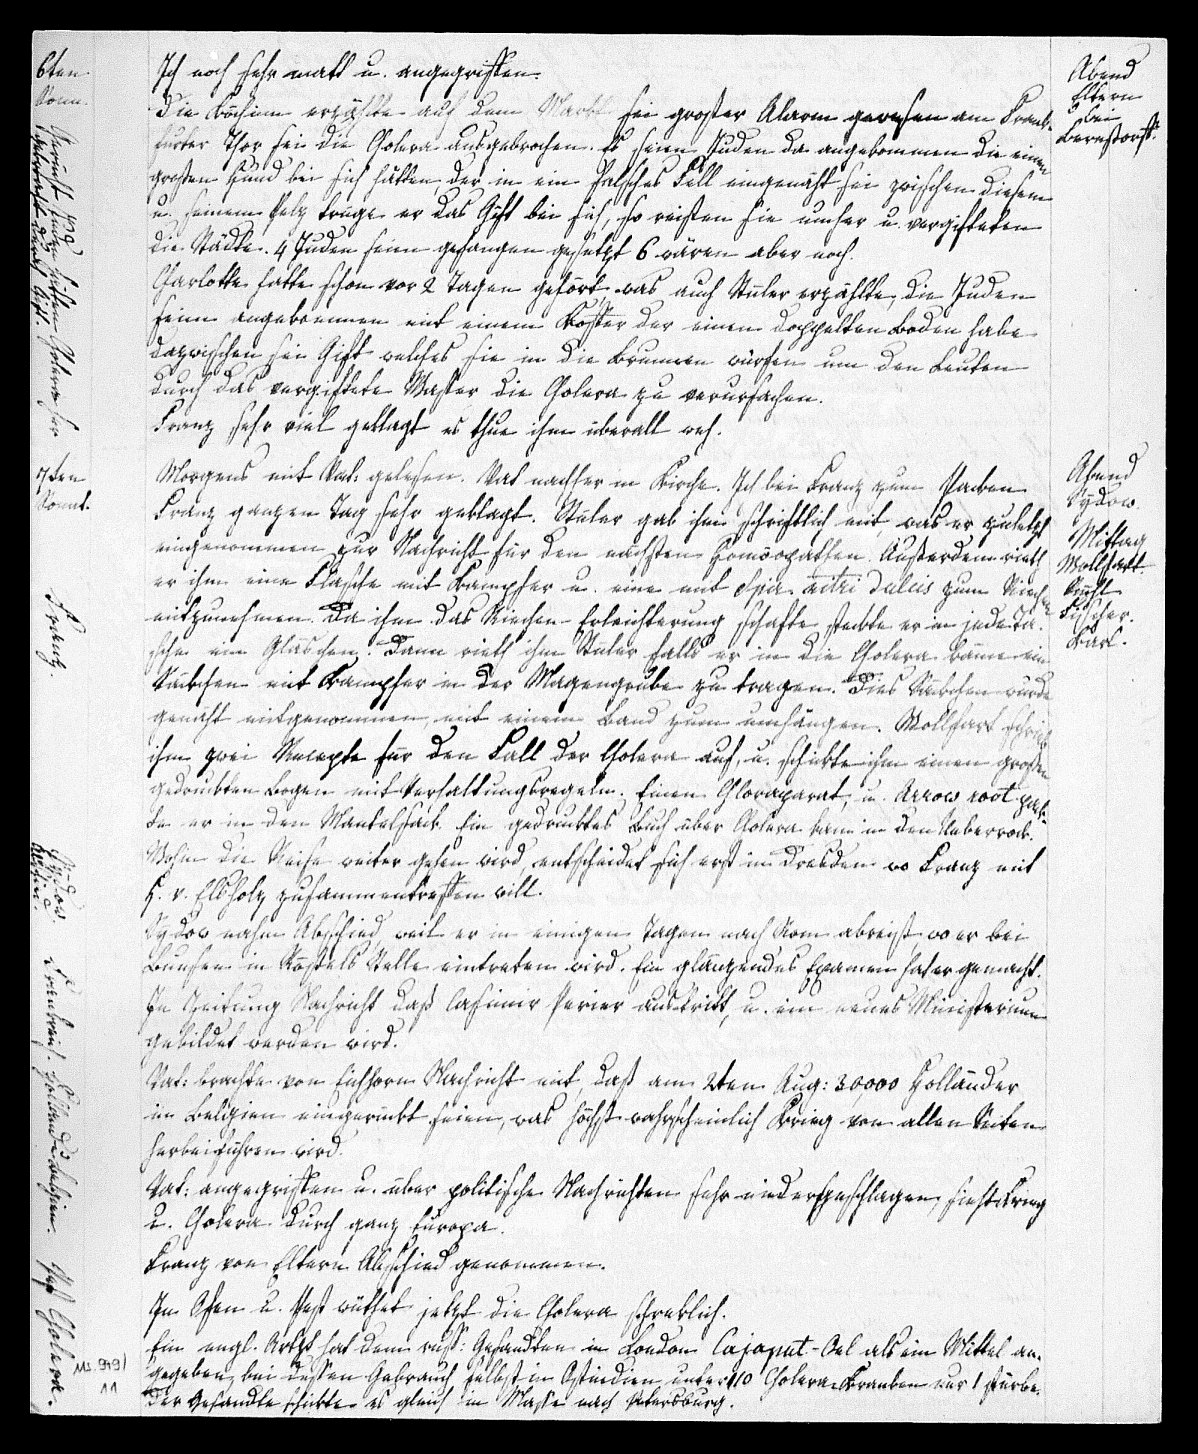 6ten
Sonn.
Ich noch sehr matt u. angegriffen.
Die Köchinn erzählte auf dem Markt sei großer Alarm gewesen am Frank-
furter Thor sei die Cholera ausgebrochen. Es seien Juden da angekommen die einen
großen Hund bei sich hätten, der in ein falsches Fell eingenäht sei zwischen diesem
u. seinem Pelz trüge er das Gift bei sich, so reisten sie umher u. vergifteten
die Städte. 4 Juden seien gefangen gesetzt 6 wären aber noch.
Charlotte hatte schon vor 2 Tagen gehört, was auch Stüler erzählte, die Juden
seien angekommen mit einem Koffer der einen doppelten Boden habe
dazwischen sei Gift welches sie in die Brunnen würfen um den Leuten
durch das vergiftete Wasser die Cholera zu verursachen.
Franz sehr viel geklagt es thue ihm überall weh.
Abend
Eltern
bei
Bernstorff.
7ten
Sonnt.
Morgens mit Vat: gelesen. Vat nachher in Kirche. Ich bei Franz zum Packen
Franz ganzen Tag sehr geklagt. Stüler gab ihm schriftlich mit, was er zuletzt
eingenommen zur Nachricht für den nächsten Homöopathen. Außerdem rieth
er ihm eine Flasche mit Kampfer u. eine mit Spir. nitri dulcis zum Riechen
mitzunehmen. Da ihm das Riechen Erleichterung schaffte steckte er in jede Ta-
sche ein Gläschen. Dann rieth ihm Stüler falls er in die Cholera käme ein
Säckchen mit Kampfer in der Magengrube zu tragen. Dies Säckchen wurde
genäht mitgenommen mit einem Band zum umhängen. Wollfart schrieb
ihm zwei Recepte für den Fall der Cholera auf, u. schickte ihm einen großen
gedruckten Bogen mit Verhaltungsregeln. Einen Chloraparat, u. Arrow root pack-
te er in den Mantelsack. Ein gedrucktes Buch über Cholera kam in den Ueberrock.
Wohin die Reise weiter gehen wird entscheidet sich erst in Dresden wo Franz mit
H. v. Elsholz zusammentreffen will.
Sydow nahm Abschied, weil er in einigen Tagen nach Rom abreist, wo er bei
Bunsen in Tippels Stelle eintreten wird. Ein glänzendes Examen hat er gemacht.
In Zeitung Nachricht daß Casimir Perier austritt, u. ein neues Ministerium
gebildet werden wird.
Vat: brachte von Eichhorn Nachricht mit, daß am 2ten Aug: 30,000 Holländer
in Belgien eingerückt seien, was höchst wahrscheinlich Krieg von allen Seiten
herbeiführen wird.
Vat: angegriffen u. über politische Nachrichten sehr niedergeschlagen, sieht Krieg
u. Cholera durch ganz Europa.
Franz von Eltern Abschied genommen.
In Ofen u. Pest wüthet jetzt die Cholera schrecklich.
Ein engl. Arzt hat dem russ: Gesandten in London Cajaput-Oel als ein Mittel an-
gegeben, bei dessen Gebrauch selbst in Ostindien unter 110 Cholera Kranken nur 1 stürbe.
Der Gesandte schickte es gleich in Masse nach Petersburg.
Abend
Sydow.
Mittag
Wollfart
Fischer.
Karl.
Franz.
Sydow
Frankreich. Holland u. Belgien.
Cholera.
Ms. 949/
11